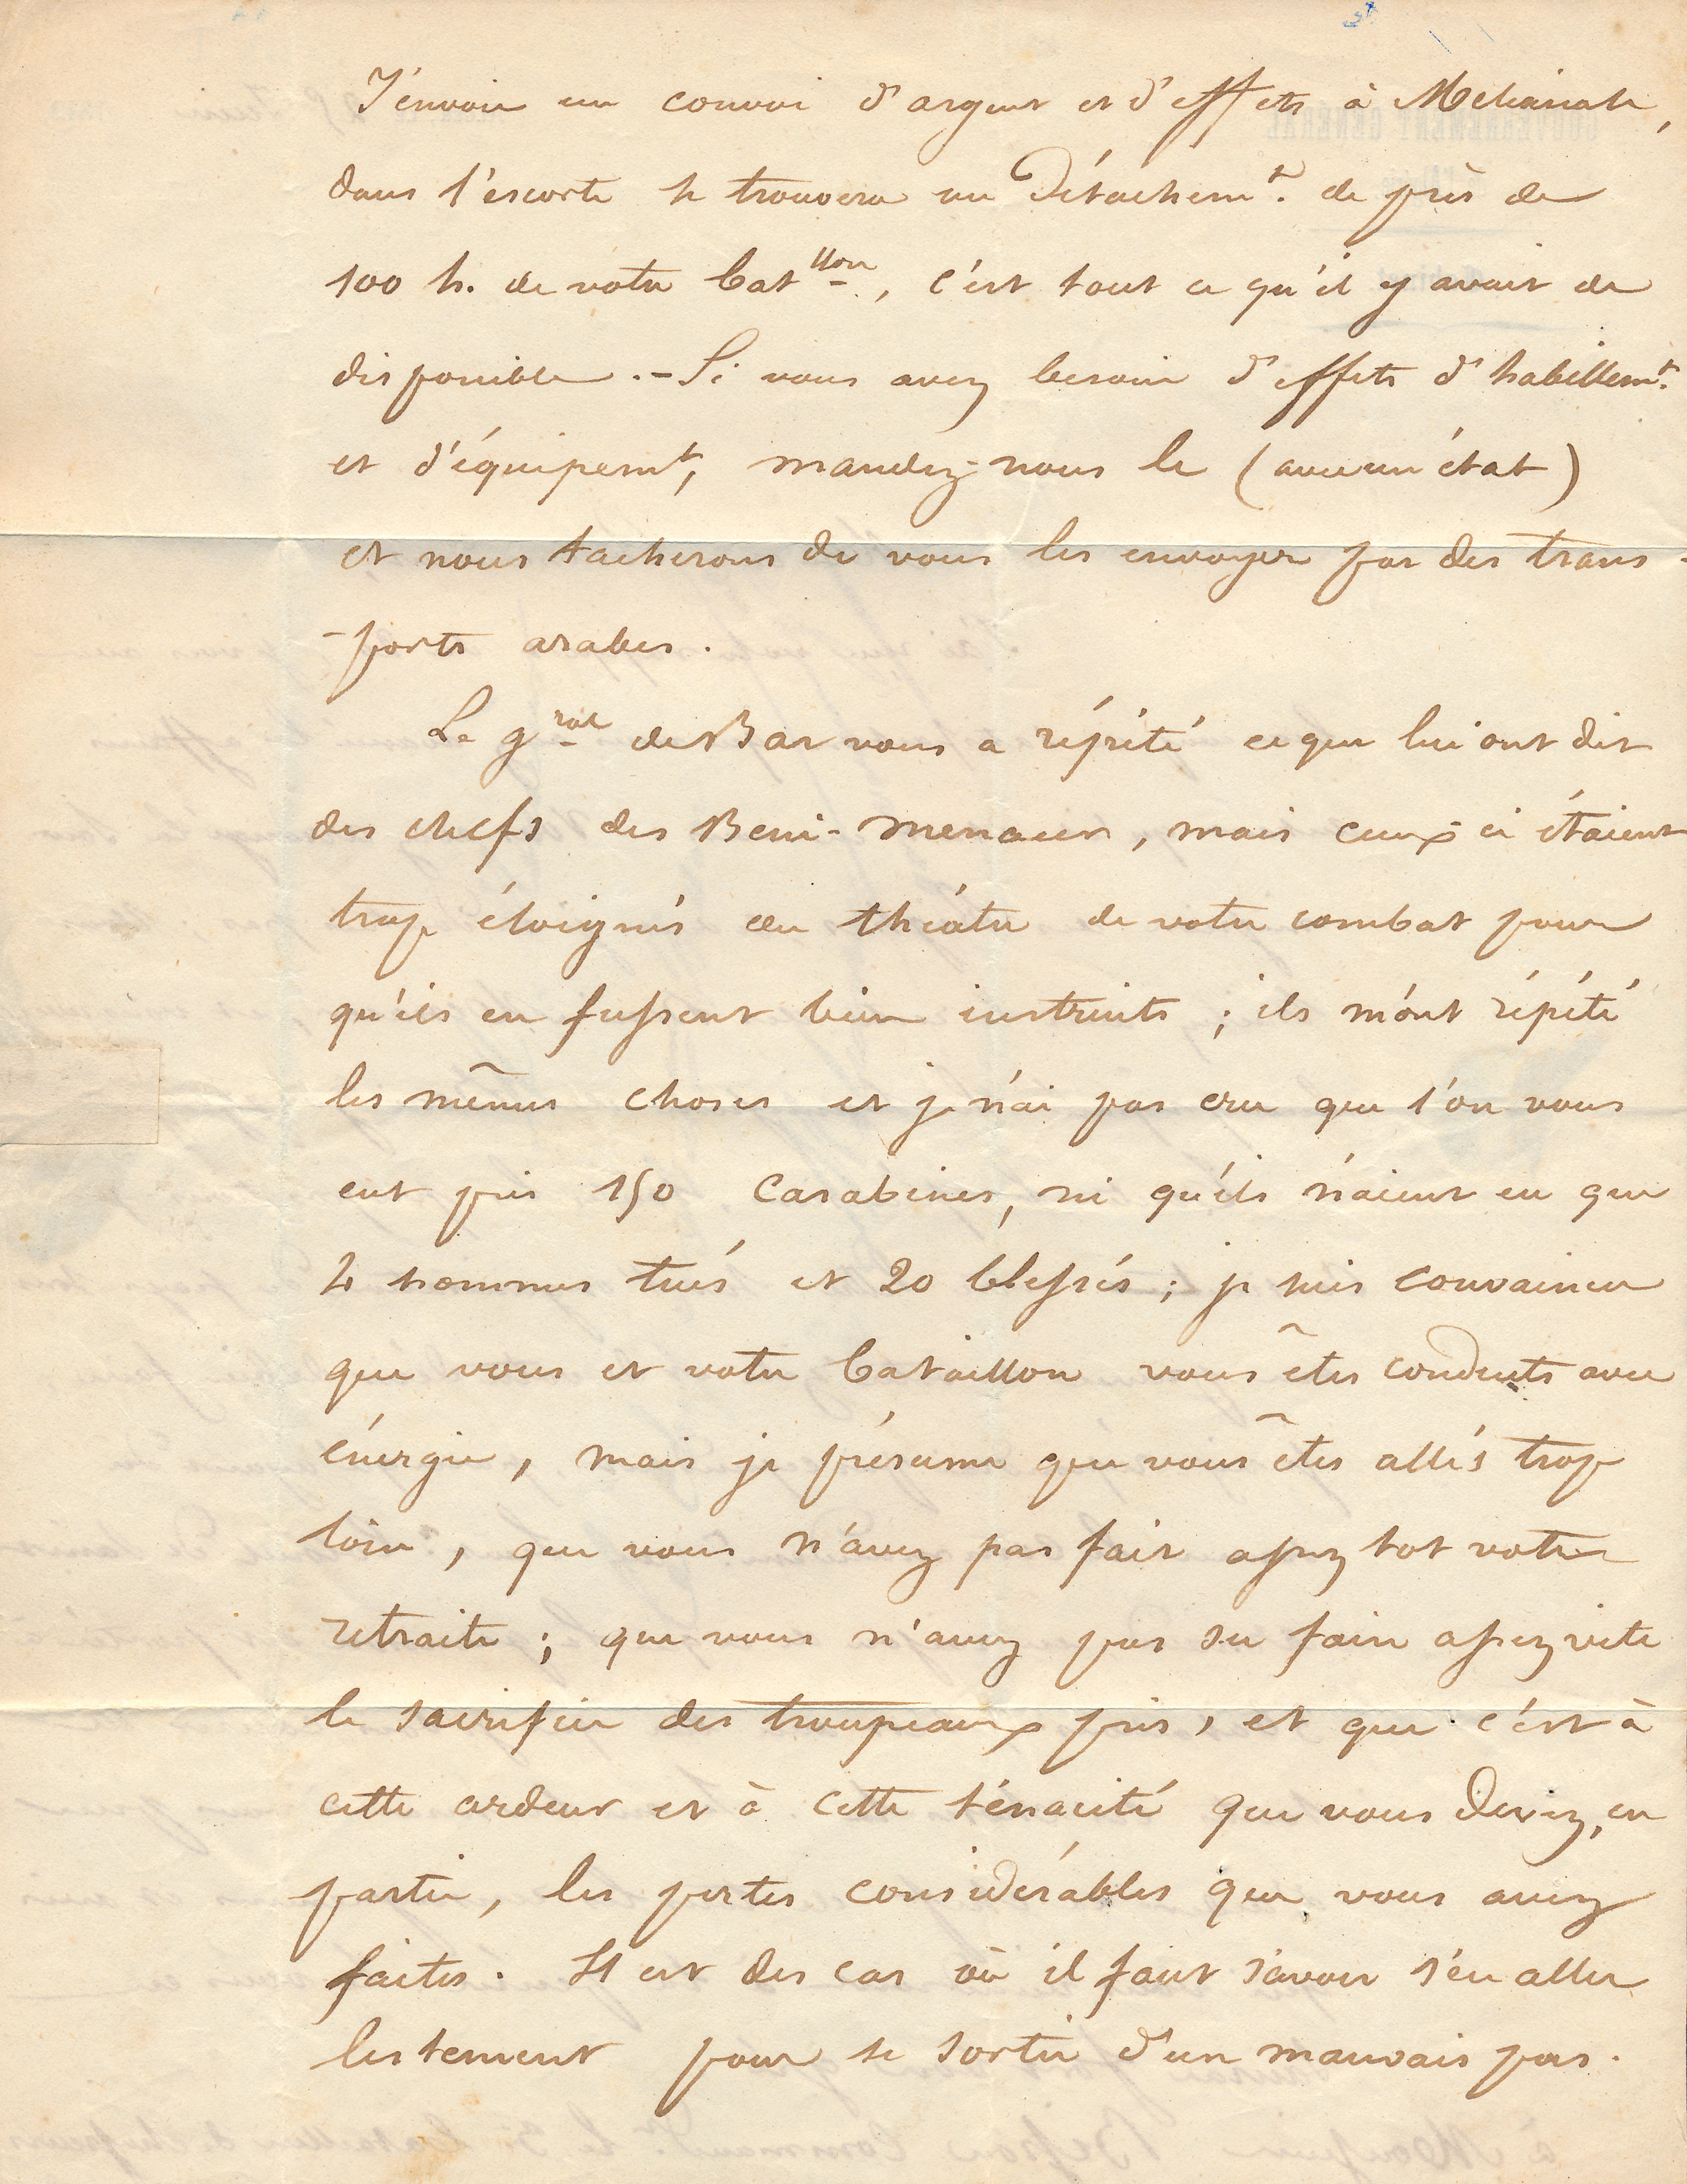 J'envoie un convoi d'argent et d'effets à Melianah,
dans l'escorte se trouvera un Détachemt. de près de
100 h. de votre batllon, c'est tout ce qu'il y avait de
disponible. - Si vous avez besoin d'effets d'habillemt.
et d'équipemt, mandez-nous le (avec un état)
et nous tacherons de vous les envoyer par des trans-
-ports arabes.
Le gral de Bar vous a répété ce que lui ont dit
des chefs des Beni-menacer, mais ceux-ci étaient
trop éloignés du théatre de votre combat pour
qu'ils en fussent bien instruits ; ils m'ont répété
les mêmes choses et je n'ai pas cru que l'on vous
eut pris 150 Carabines, ni qu'ils n'aient eu que
4 hommes tués et 20 blessés ; je suis convaincu
que vous et votre bataillon vous êtes conduits avec
énergie, mais je présume que vous êtes allés trop
loin, que vous n'avez pas fait assez tot votre
retraite ; que vous n'avez pas su faire assez vite
le sacrifice des troupeaux pris, et que c'est à
cette ardeur et à cette ténacité que vous devez, en
partie, les pertes considérables que vous avez
faites. Il est des cas où il faut savoir s'en aller
lestement pour se sortir d'un mauvais pas.